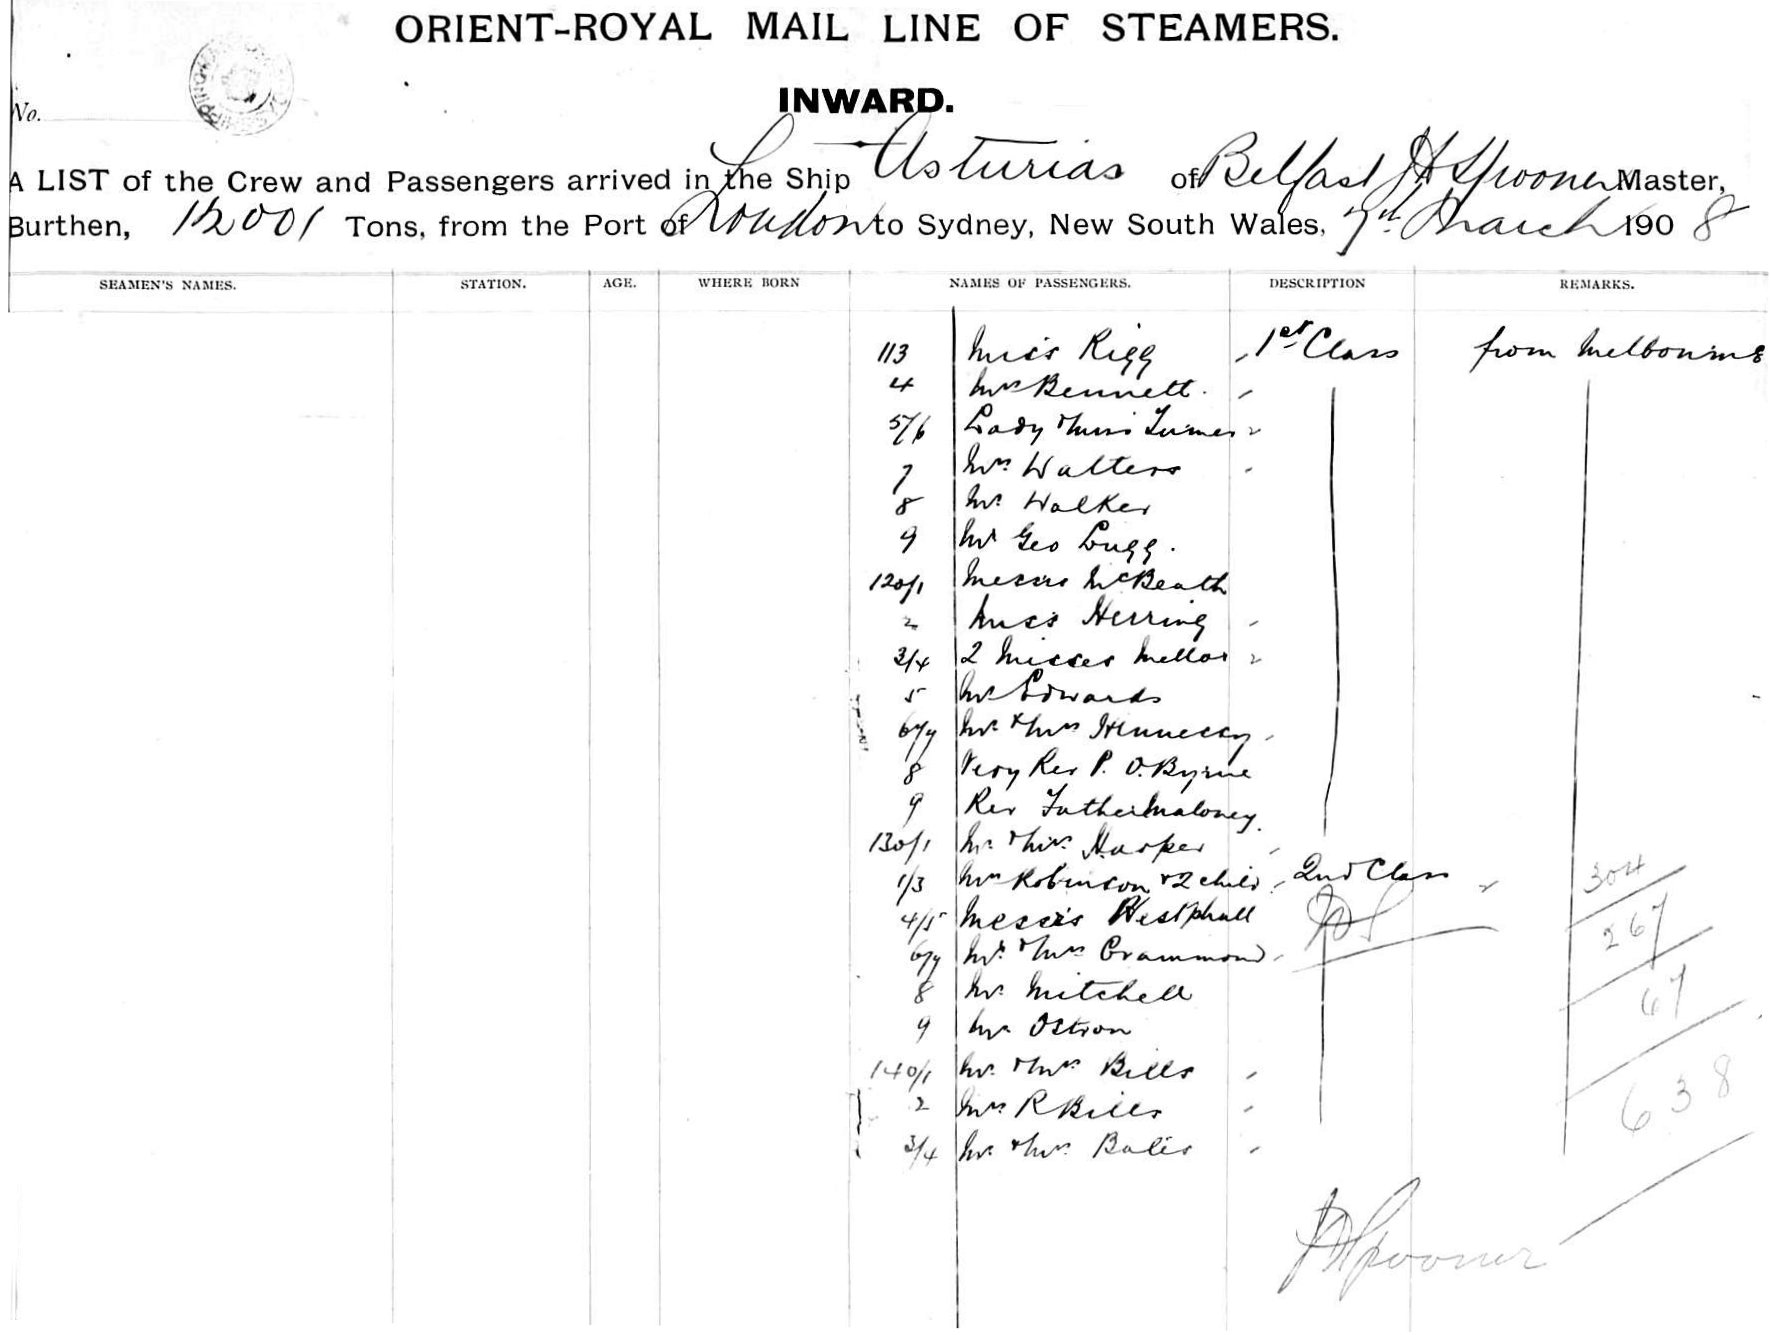 ORIENT-ROYAL MAIL LINE OF STEAMERS.
INWARD.
No.
A LIST of the Crew and Passengers arrived in the Ship Asturias of Belfast J H Spooner Master,
Burthen, 12001 Tons, from the Port of London to Sydney, New South Wales, 7th March 1908
SEAMEN'S NAMES. STATION. AGE. WHERE BORN NAMES OF PASSENGERS. DESCRIPTION REMARKS.
113 Miss Rigg 1st Class from Melbourne
4 Mrs Bennett.
5/6 Lady & Miss Turner
7 Mrs Walters
8 Mr. Walker
9 Mr Geo Lugg.
120/1 Messrs McBeath
2 Miss Herring
3/4 2 Misses Mellor
5 Mr Edwards
6/7 Mr. & Mrs Hennessy
8 Very Rev P. O.Byrne
9 Rev Father Maloney.
130/1 Mr. & Mrs. Harper
1/3 Mrs Robinson & 2 child 2nd Class 304
4/5 Messrs Westphall JHS 267
6/7 Mr. & Mrs Crammond
8 Mr. Mitchell 67
9 Mr Ostron
140/1 Mr. & Mrs Bills
2 Mrs R Bills 638
3/4 Mr. & Mrs.
JHSpooner